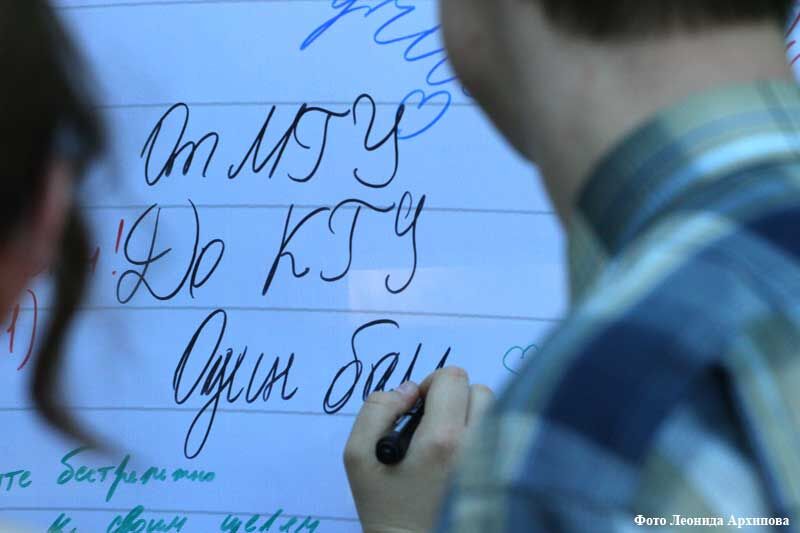 От МГУ
До КГУ
Один бал
бестрепитно
к своим целям
Фото Леонида Архипова